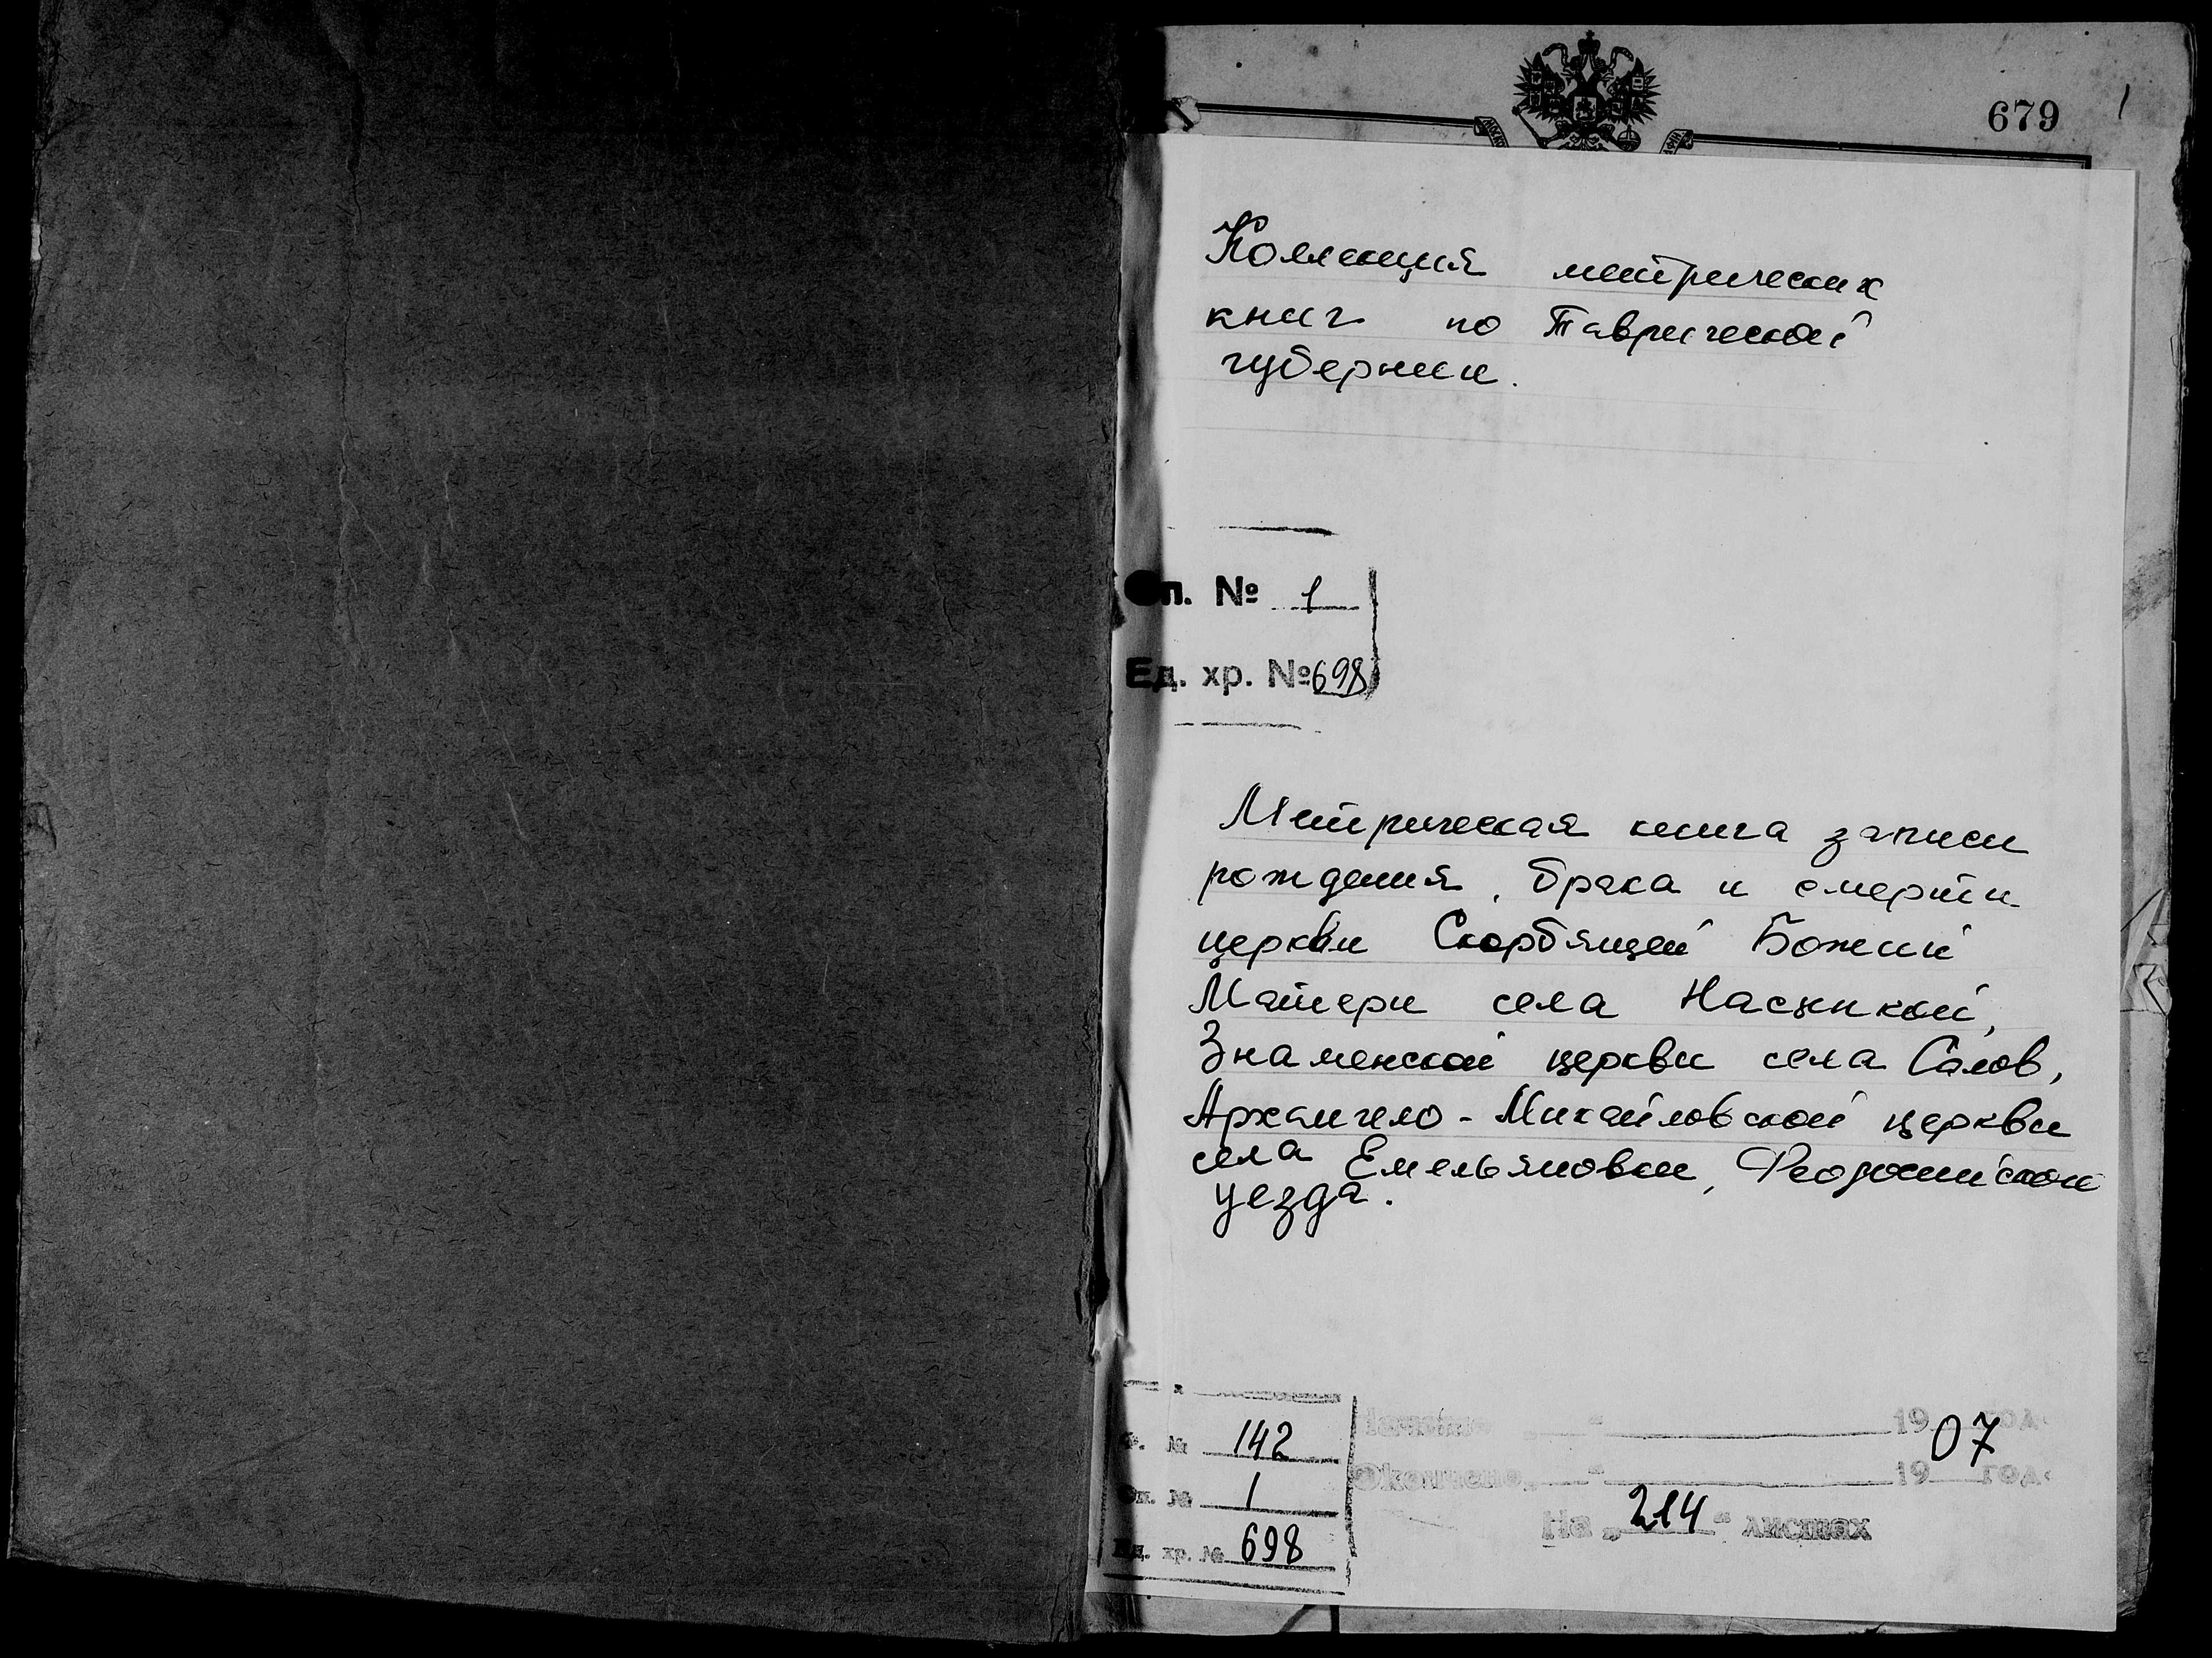 679
1
Коллекция метрических
книг по Таврической
губернии.
Оп. № 1
Ед. хр. № 698
Метрическая книга записи
рождения, брака и смерти
церкви Скорбящей Божий
Матери села Насыпкой,
Знаменской церкви села Салов,
Архангело-Михайловской церкви
села Емельяновки, Феодосийской
уезда.
Ф. № 142
Оп. № 1
Ед. хр. № 698
" " 1907 год
Окончено " " 19 год
На „214“ листах